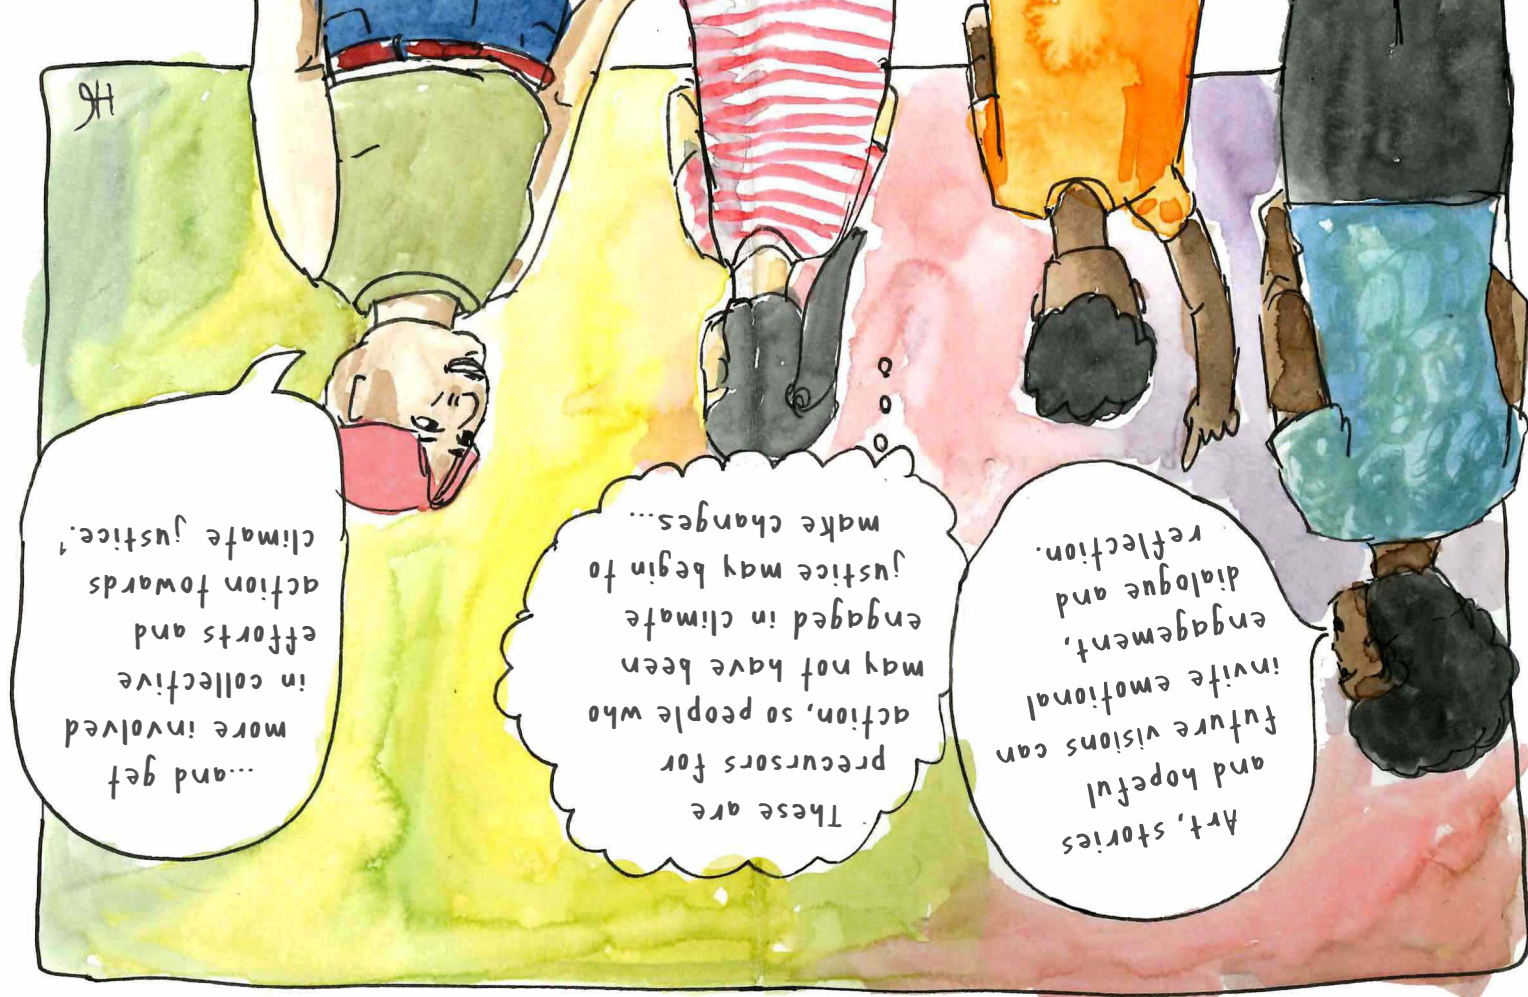 Art, stories
and hopeful
future visions can
invite emotional
engagement,
dialogue and
reflection.
These are
precursors for
action, so people who
may not have been
engaged in climate
justice may begin to
make changes...
...and get
more involved
in collective
efforts and
action towards
climate justice.'